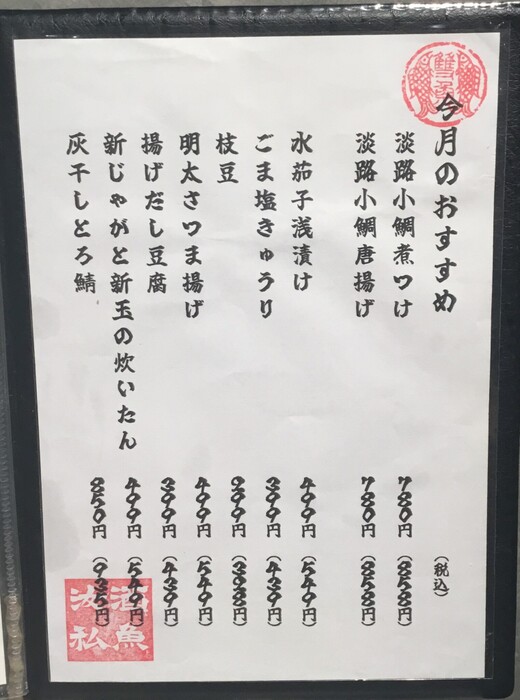 今月のおすすめ (税込)
淡路小鯛煮つけ 780円 (858円)
淡路小鯛唐揚げ 780円 (858円)
水茄子浅漬け 499円 (549円)
ごま塩きゅうり 399円 (439円)
枝豆
明太さつま揚げ 499円 (549円)
揚げだし豆腐 399円 (439円)
新じゃがと新玉の炊いたん 499円 (549円)
灰干しとろ鯖 850円 (935円)